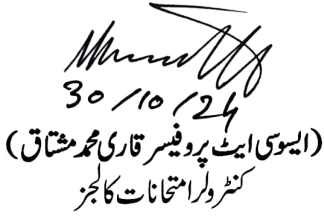 30/10/24
(ایسوسی ایٹ پروفیسر قاری محمد مشتاق)
کنٹرولر امتحانات کالجز